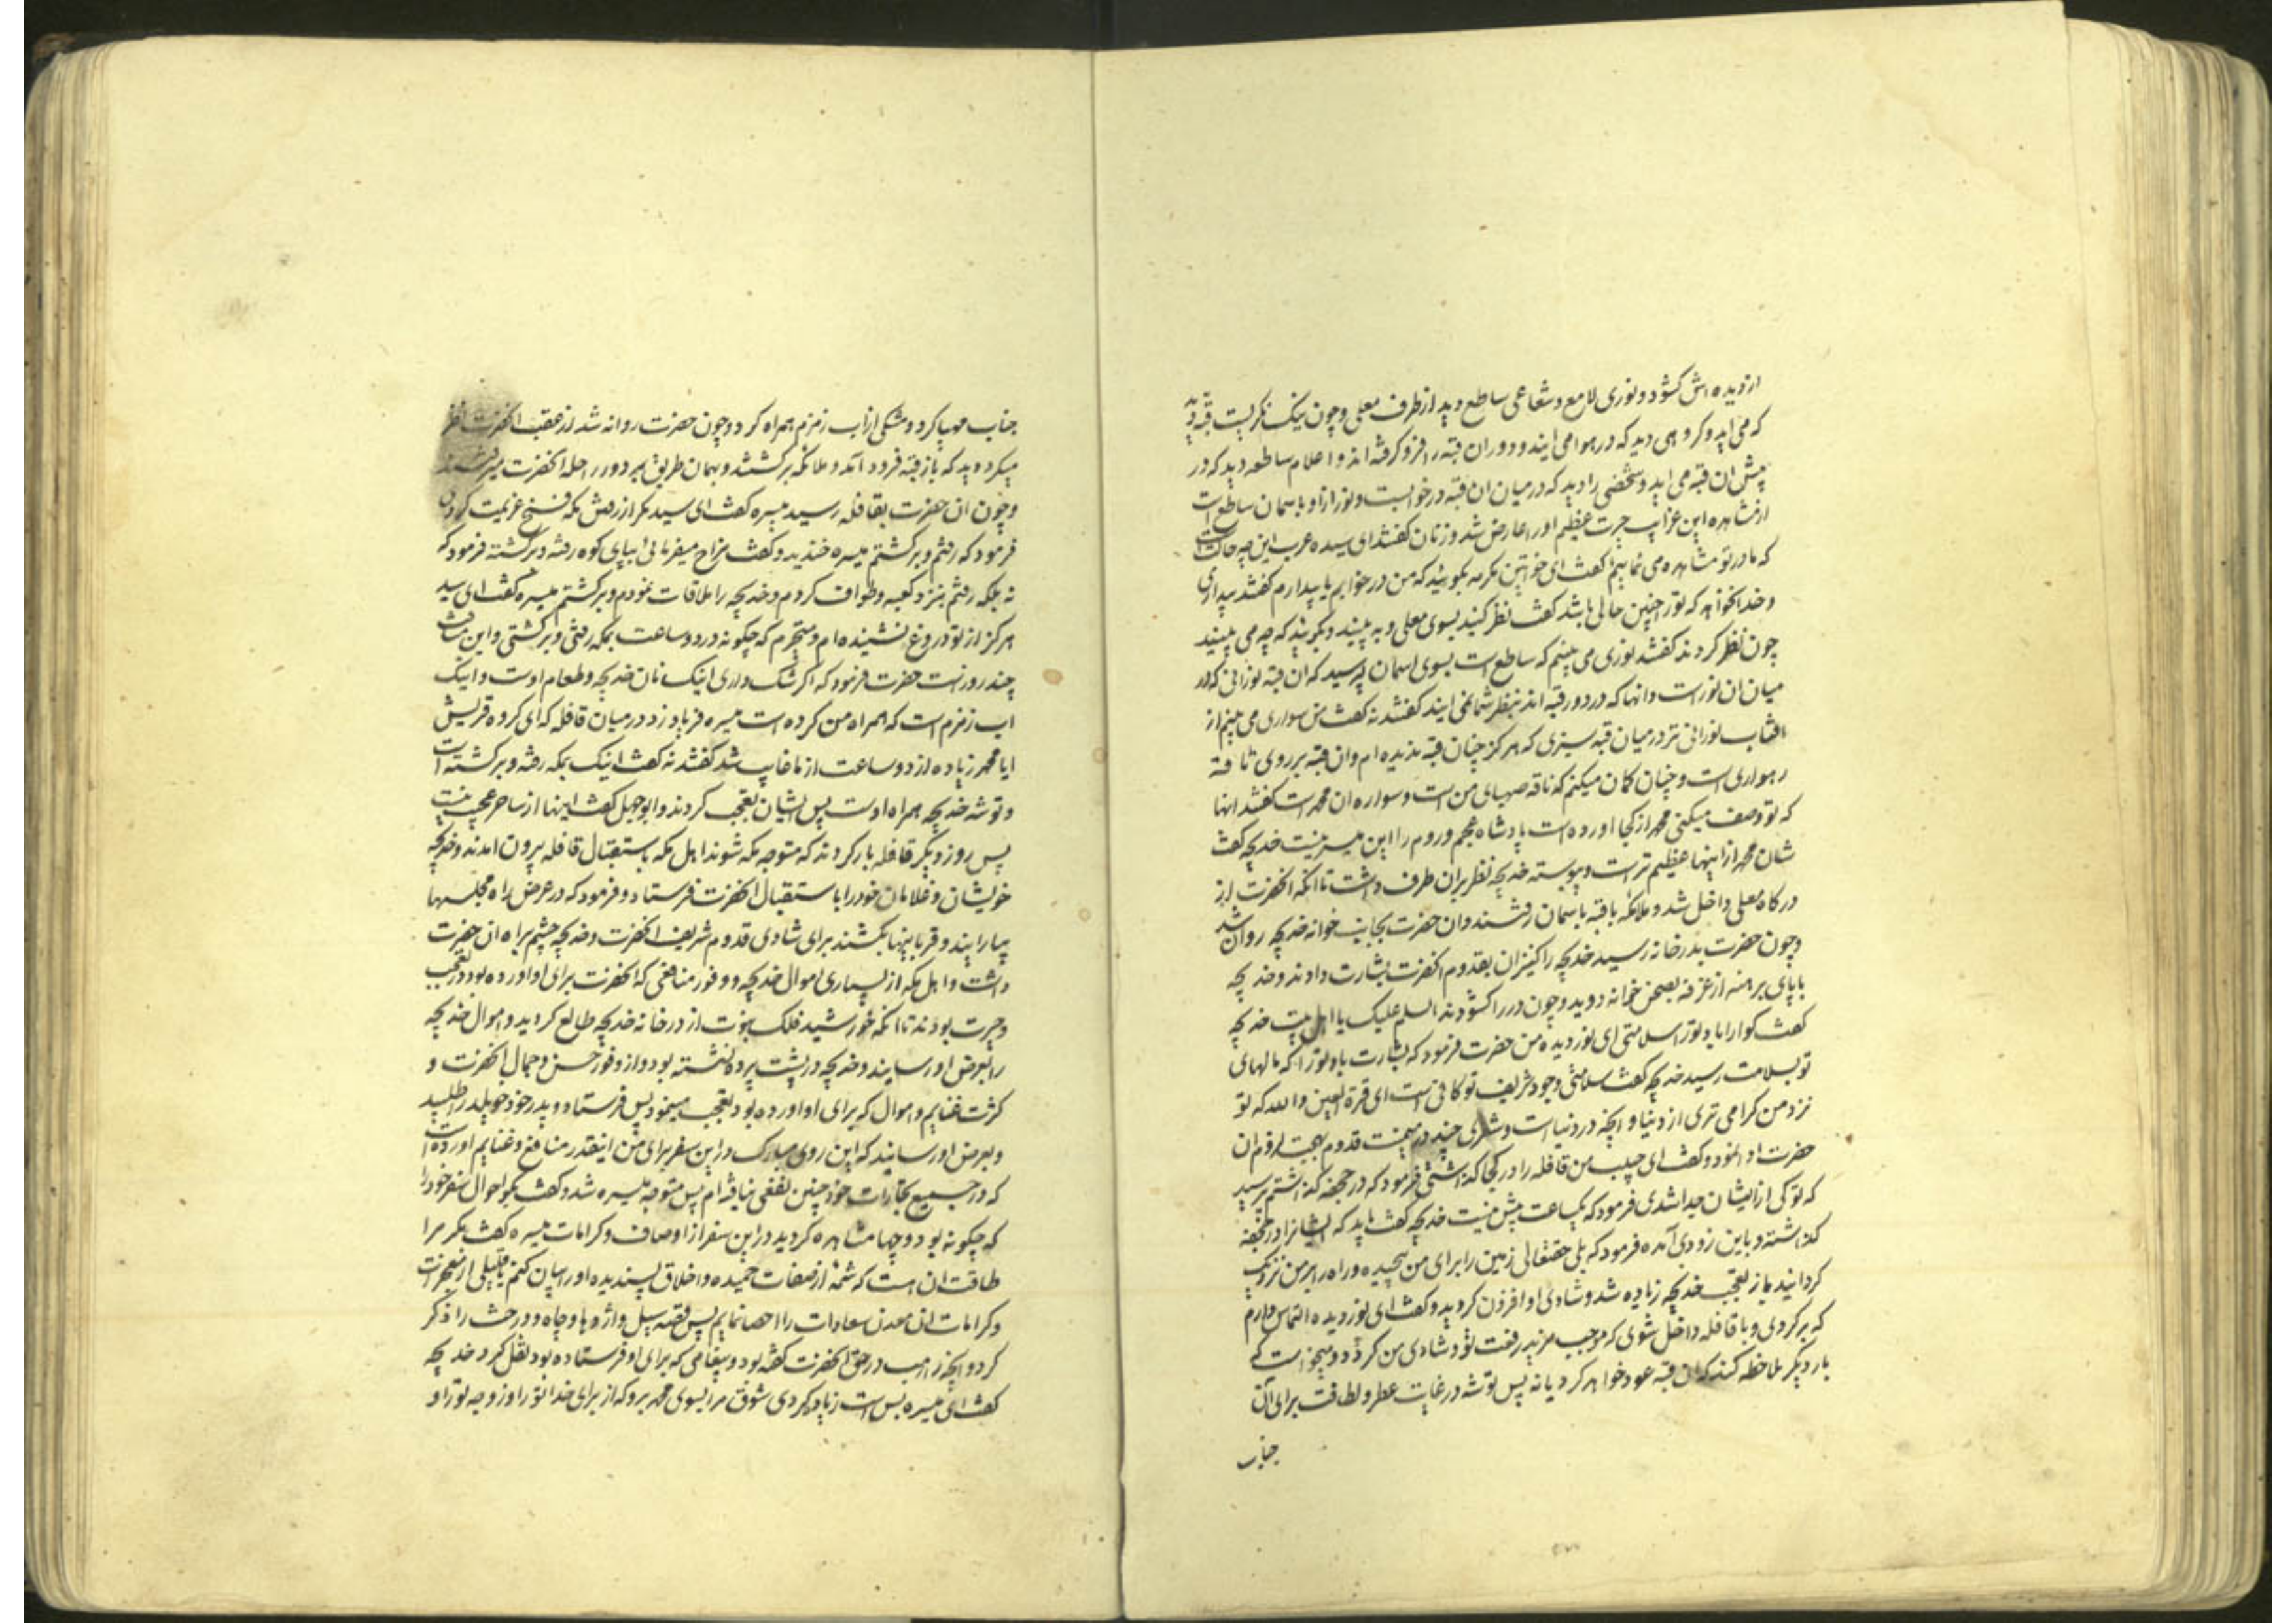 از دیده اش کشود و نوری لامع و شعاعی ساطع دید از طرف معلی و چون نیک نکریست قبه دید
که می اید و کروهی دید که در هوا می ایند و دوران قبه را فرو کرفته اند و اعلام ساطعه دید که در
پیش ان قبه می اید و شخصی را دید که در میان ان قبه در خوابست و نور از او باسمان ساطع است
از مشاهده این غرایب حیرت عظیم او را عارض شد و زنان کفتند ای سیده عرب این چه حالتست
که ما در تو مشاهده می نماییم کفت ای خواتین مکرمه بکوئید که من در خوابم یا بیدارم کفتند بیداری
و خدا نخواهد که تو را چنین حالی باشد کفت نظر کنید بسوی معلی و به بینید و بکوئید که چه می بینید
چون نظر کردند کفتند نوری می بینیم که ساطع است بسوی اسمان پرسید که ان قبه نورانی که در
میان ان نور است و انها که در دور قبه اند بنظر شما نمی ایند کفتند نه کفت من سواری می بینم از
افتاب نورانی تر در میان قبه سبزی که هرکز چنان قبه ندیده ام و ان قبه بر روی ناقه
رهواری است و چنان کمان میکنم که ناقه صهبای من است و سواره ان محمد است کفتند انها
که تو وصف میکنی محمد از کجا اورده است پادشاه عجم و روم را این میسر نیست خدیجه کفت
شان محمد از اینها عظیم تر است و پیوسته خدیجه نظر بران طرف داشت تا انکه انحضرت از
درکاه معلی داخل شد و ملائکه با قبه باسمان رفتند و ان حضرت بجانب خوانه خدیجه روان شد
و چون حضرت بدرخانه رسید خدیجه را کنیزان بقدوم انحضرت بشارت دادند و خدیجه
با پای برهنه از غرفه بصحن خوانه دوید و چون در را کشودند السلام علیک یا اهل بیت خدیجه
کفت کوارا باد تو را سلامتی ای نور دیده من حضرت فرمود که بشارت باد تو را که مالهای
تو بسلامت رسید خدیجه کفت سلامتی وجود شریف تو کافی است ای قرة العین والله که تو
نزد من کرامی تری از دنیا و انچه در دنیا است و شعری چند در میمنت قدوم بهجت لزوم ان
حضرت ادا نمود و کفت ای حبیب من قافله را در کجا کذاشتی فرمود که در جحفه کذاشتم پرسید
که تو کی از ایشان جدا شدی فرمود که یکساعت پیش نیست خدیجه کفت باید که ایشانرا در جحفه
کذاشته و باین زودی آمده فرمود که بلی حقتعالی زمین را برای من پیچیده و راه را بر من نزدیک
کردانید باز تعجب خدیجه زیاده شد و شادی او افزون کردید و کفت ای نور دیده التماس دارم
که برکردی و با قافله داخل شوی که موجب مزید رفعت تو و شادی من کردد و میخواست که
بار دیکر ملاحظه کند که ان قبه عود خواهد کرد یا نه پس توشه در غایت عطر و لطافت برای آن
جناب
جناب مهیا کرد و مشکی از اب زمزم همراه کرد و چون حضرت روانه شد از عقب انحضرت نظر
میکرد دید که باز قبه فرود آمد و ملائکه برکشتند و بهمان طریق بر دور راحله انحضرت میرفتند
و چون ان حضرت بقافله رسید میسره کفت ای سید مکر از رفتن مکه فسخ عزیمت کردی
فرمود که رفتم و برکشتم میسره خندید و کفت مزاح میفرمائی بپای کوه رفته و برکشته فرمود که
نه بلکه رفتم بنزد کعبه و طواف کردم و خدیجه را ملاقات نمودم و برکشتم میسره کفت ای سید
هرکز از تو دروغ نشنیده ام و متحیرم که چکونه در دو ساعت بمکه رفتی و برکشتی و این مسافت
چند روز است حضرت فرمود که اکر شک داری اینک نان خدیجه و طعام اوست و اینک
اب زمزم است که همراه من کرده است میسره فریاد زد در میان قافله که ای کروه قریش
ایا محمد زیاده از دو ساعت از ما غایب شد کفتند نه کفت اینک بمکه رفته و برکشته است
و توشه خدیجه همراه اوست پس ایشان تعجب کردند و ابوجهل کفت اینها از ساحر عجیب نیست
پس روز دیکر قافله بار کردند که متوجه مکه شوند اهل مکه باستقبال قافله بیرون امدند و خدیجه
خویشان و غلامان خود را باستقبال انحضرت فرستاد و فرمود که در عرض راه مجلسها
بیارایند و قربانیها بکشند برای شادی قدوم شریف انحضرت و خدیجه چشم براه ان حضرت
داشت و اهل مکه از بسیاری اموال خدیجه و وفور منافعی که انحضرت برای او اورده بود در تعجب
و حیرت بودند تا انکه خورشید فلک نبوت از در خانه خدیجه طالع کردید و اموال خدیجه
را بعرض او رسانید و خدیجه در پشت پرده نشسته بود و از وفور حسن و جمال انحضرت و
کثرت غنایم و اموال که برای او اورده بود تعجب مینمود پس فرستاد و پدر خود خویلد را طلبید
و بعرض او رسانید که این روی مبارک در این سفر برای من اینقدر منافع و غنایم اورده است
که در جمیع تجارات خود چنین نفعی نیافته ام پس متوجه میسره شد و کفت بکو احوال سفر خود را
که چکونه بود و چها مشاهده کردید در این سفر از اوصاف و کرامات میسره کفت مکر مرا
طاقت ان است که شمه از صفات حمیده و اخلاق پسندیده او را بیان کنم یا قلیلی از معجزات
و کرامات ان معدن سعادات را احصا نمایم پس قصه سیل و اژدها و چاه و درخت را ذکر
کرد و انچه راهب در حق انحضرت کفته بود و پیغامی که برای او فرستاده بود نقل کرد خدیجه
کفت ای میسره بس است زیاد کردی شوق مرا بسوی محمد برو که از برای خدا تو را و زوجه تو را و